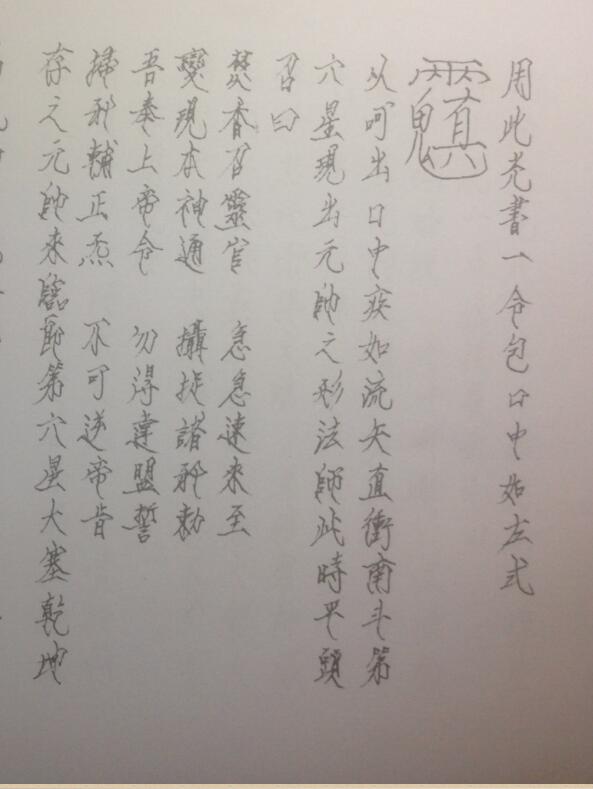 用此炁書一令包口中如左式
以呵出口中疾如流矢直衝南斗第
六星現出元帥之形法師此時平頭
召曰
焚香召靈官　急急速來至
變現本神通　攝捉諸邪勅
吾奉上帝令　勿得違盟誓
掃邪輔正炁　不可逆帝旨
存之元帥來臨即第六星大塞乾地